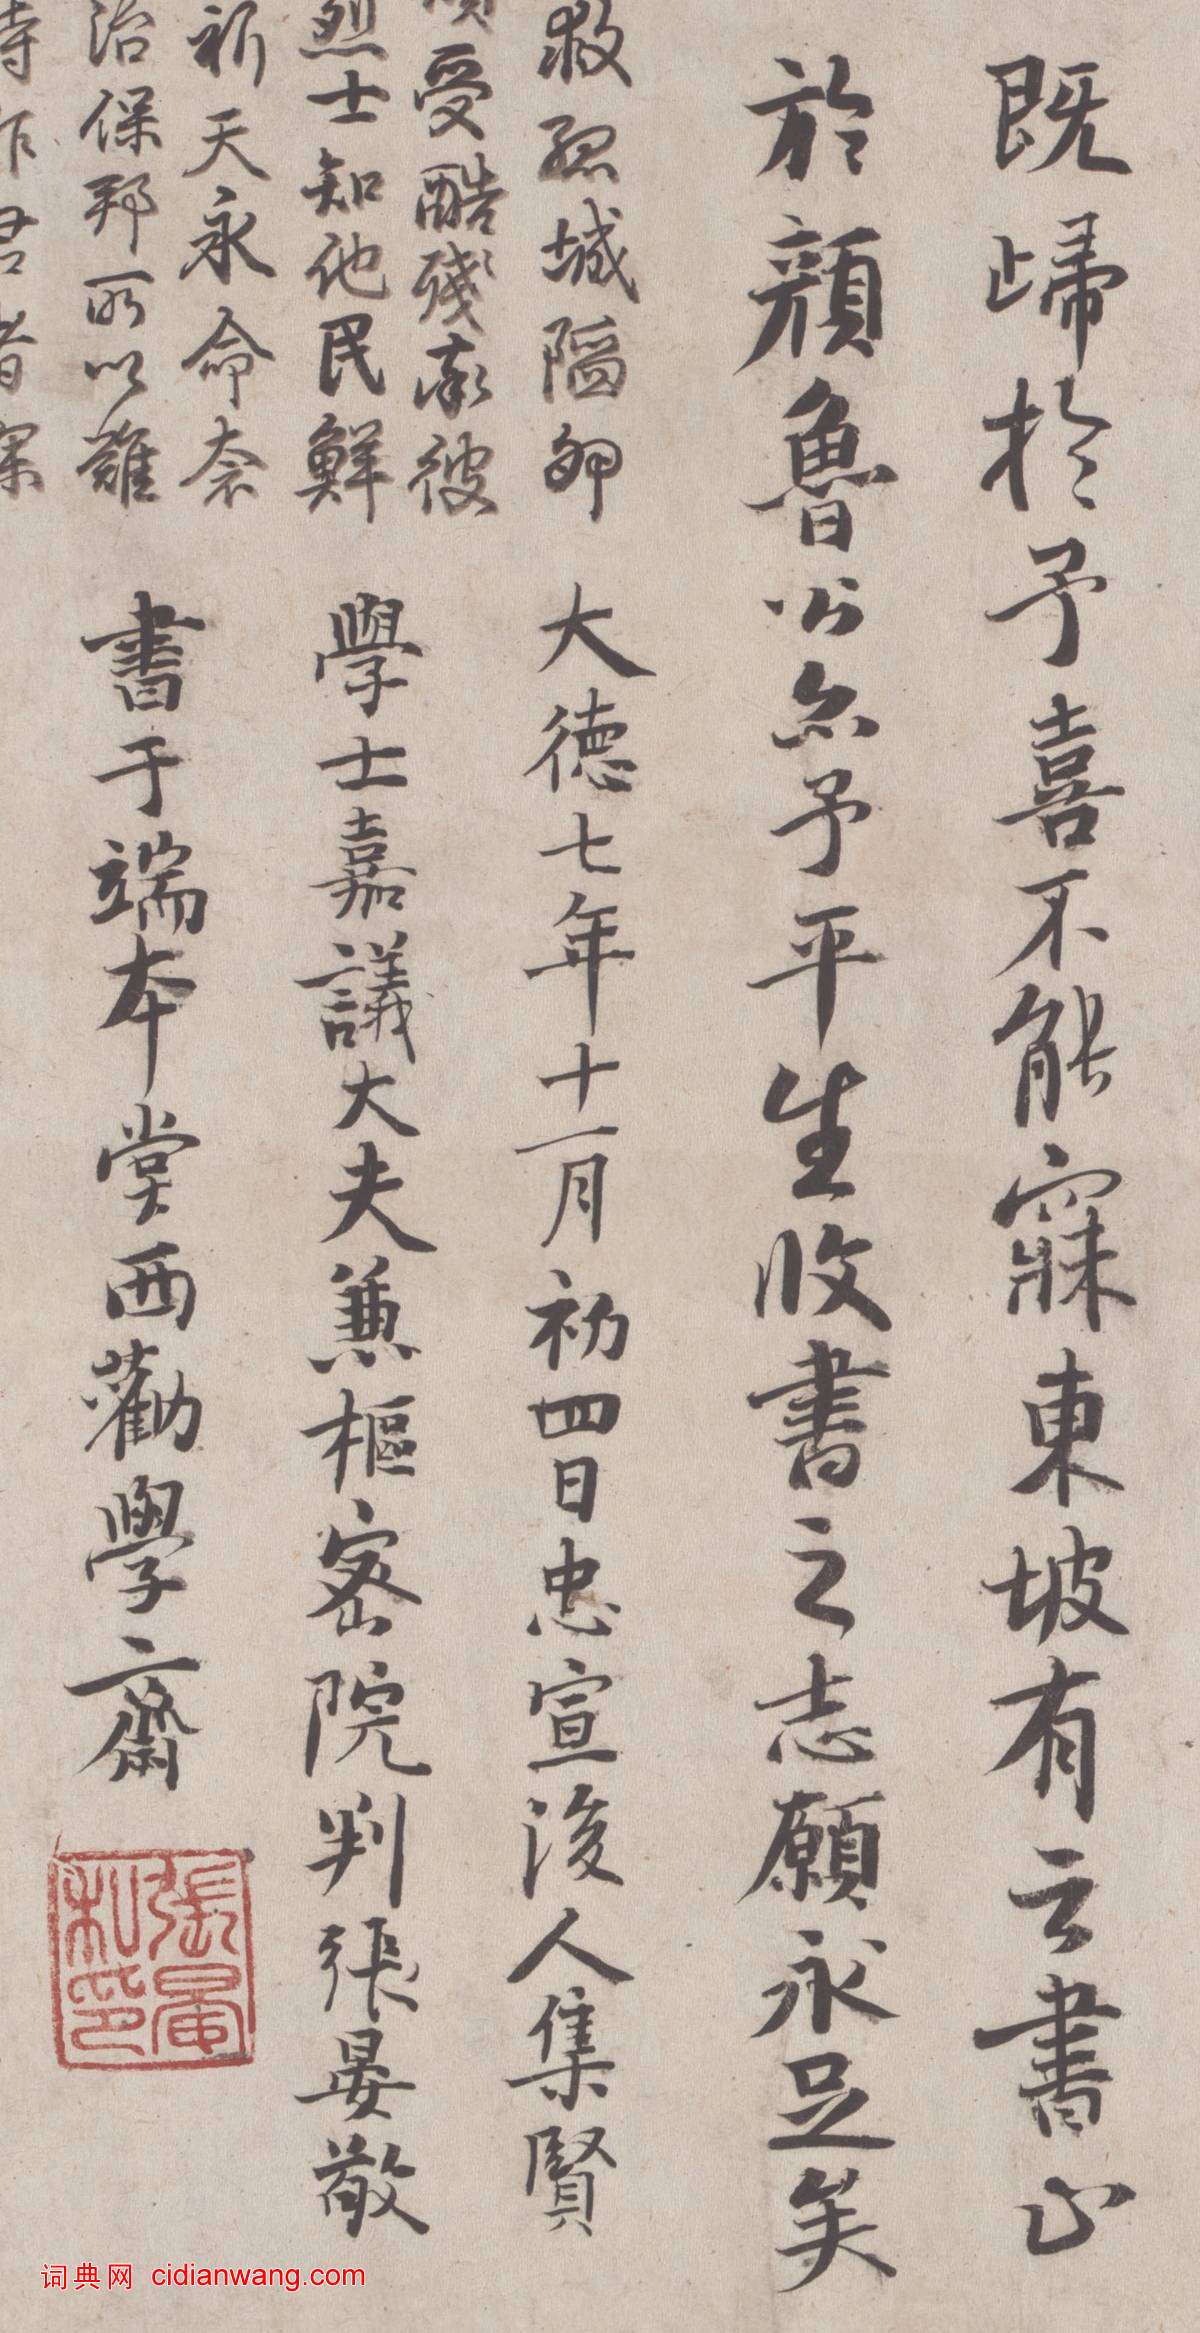 既歸於予喜不能寐東坡有云書止
於顏魯公亦予平生收書之志願永足矣
救孤城陷卵
受酷殘哀彼
烈士知他民鮮
祈天永命奈
治保邦所以難
君者
大德七年十一月初四日忠宣後人集賢
學士嘉議大夫兼樞密院判張晏敬
書于端本堂西勸學齋
張晏私印
词典网 cidianwang.com